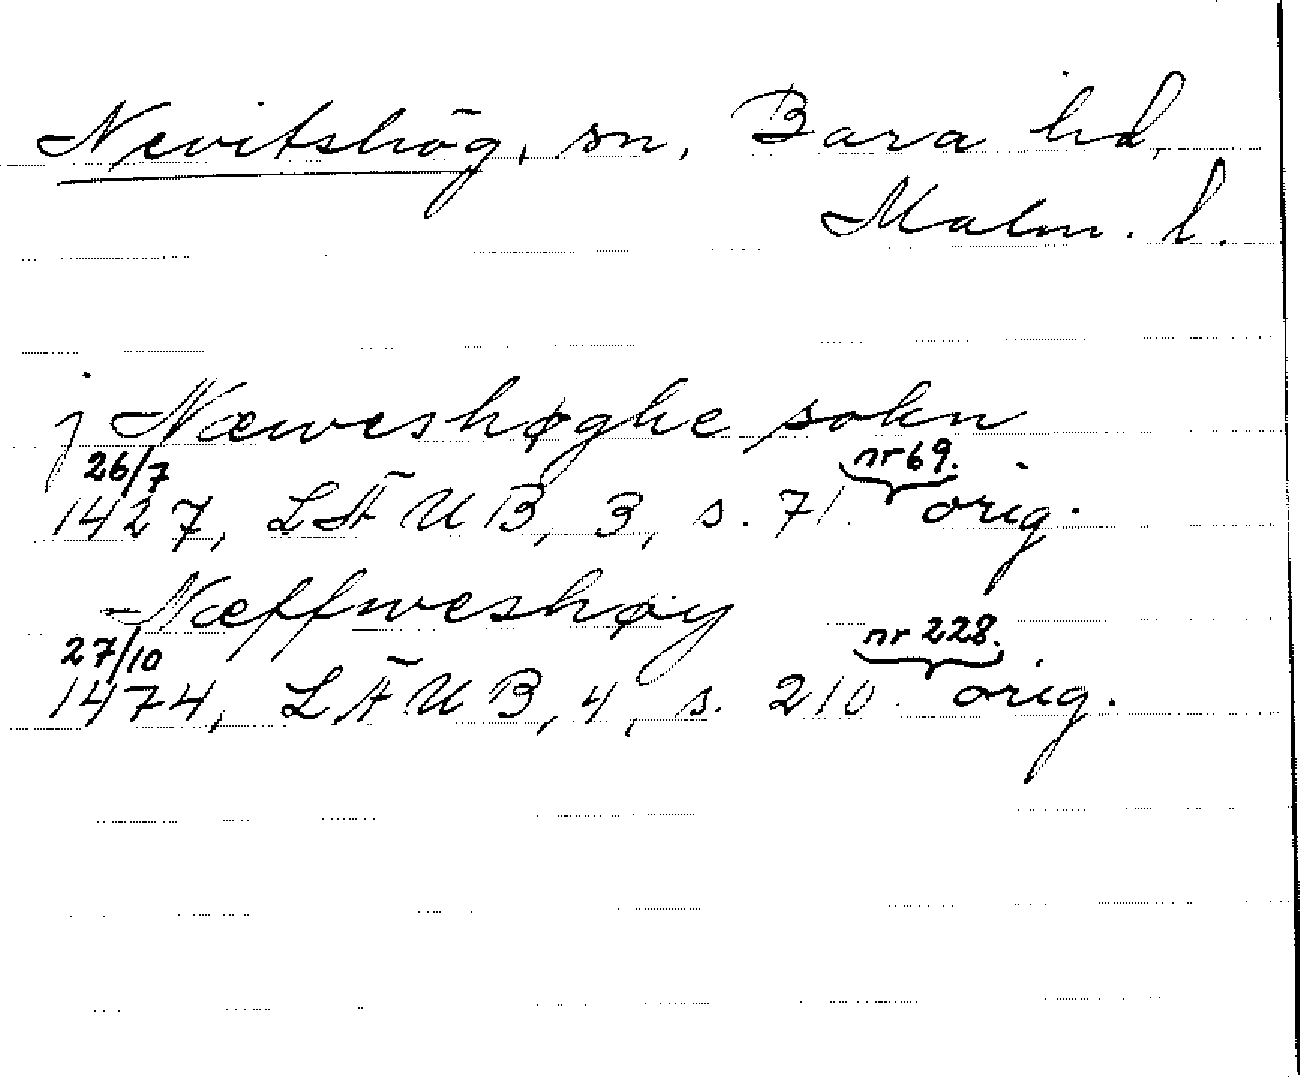 Nevitshög, sn, Bara hd,
Malm. l.
j Næweshøghe sokn
26/7 nr 69.
1427, LÄUB, 3, s. 71. orig.
Næffweshøy
27/10 nr 228.
1474, LÄUB, 4, s. 210. orig.